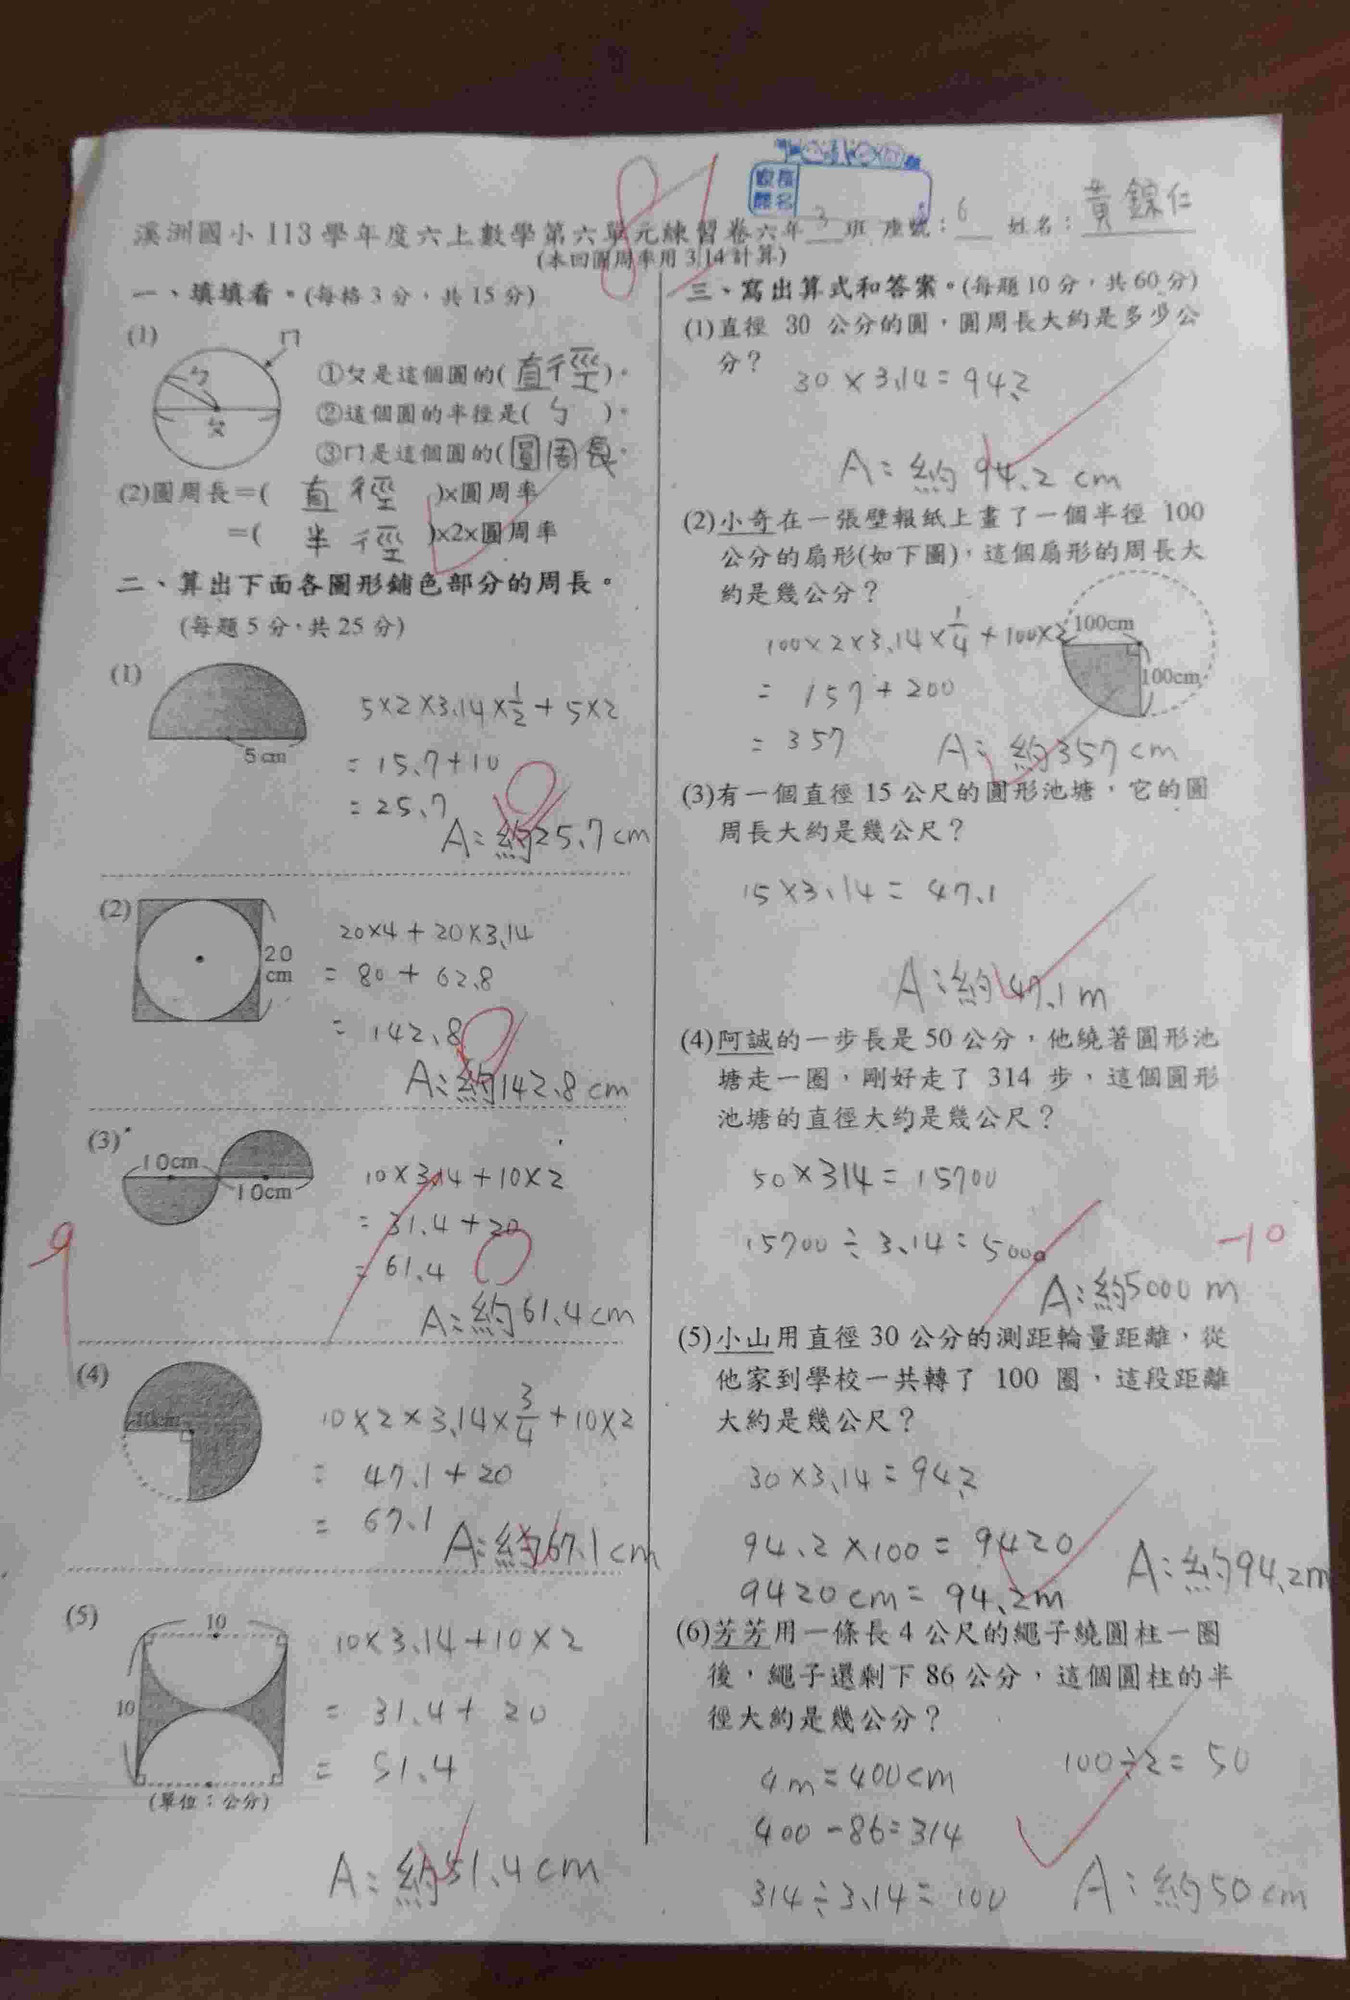 81
溪洲國小 113 學年度六上數學第六單元練習卷六年 3 班 座號：6 姓名：黃錦仁
(本回圓周率用 3.14 計算)
一、填填看。(每格 3 分，共 15 分)
(1)
ㄇ
ㄅ
ㄆ
①ㄆ是這個圓的(直徑)。
②這個圓的半徑是(ㄅ)。
③ㄇ是這個圓的(圓周長。
(2)圓周長＝(直徑)×圓周率
＝(半徑)×2×圓周率
二、算出下面各圖形鋪色部分的周長。
(每題 5 分，共 25 分)
(1)
5 cm
5×2×3.14×1/2+5×2
= 15.7+10
= 25.7
A：約25.7cm
(2)
20
cm
20×4+20×3.14
= 80+62.8
= 142.8
A：約142.8cm
(3)
10cm
10cm
10×3.14+10×2
= 31.4+20
= 61.4
A：約61.4cm
-9
(4)
10cm
10×2×3.14×3/4+10×2
= 47.1+20
= 67.1
A：約67.1cm
(5)
10
10
(單位：公分)
10×3.14+10×2
= 31.4+20
= 51.4
A：約51.4cm
三、寫出算式和答案。(每題 10 分，共 60 分)
(1)直徑 30 公分的圓，圓周長大約是多少公
分？
30×3.14=94.2
A：約94.2cm
(2)小奇在一張壁報紙上畫了一個半徑 100
公分的扇形(如下圖)，這個扇形的周長大
約是幾公分？
100cm
100cm
100×2×3.14×1/4+100×2
= 157+200
= 357
A：約357cm
(3)有一個直徑 15 公尺的圓形池塘，它的圓
周長大約是幾公尺？
15×3.14=47.1
A：約47.1m
(4)阿誠的一步長是 50 公分，他繞著圓形池
塘走一圈，剛好走了 314 步，這個圓形
池塘的直徑大約是幾公尺？
50×314=15700
15700÷3.14=5000
-10
A：約5000m
(5)小山用直徑 30 公分的測距輪量距離，從
他家到學校一共轉了 100 圈，這段距離
大約是幾公尺？
30×3.14=94.2
94.2×100=9420
9420cm=94.2m
A：約94.2m
(6)芳芳用一條長 4 公尺的繩子繞圓柱一圈
後，繩子還剩下 86 公分，這個圓柱的半
徑大約是幾公分？
4m=400cm
400-86=314
314÷3.14=100
100÷2=50
A：約50cm